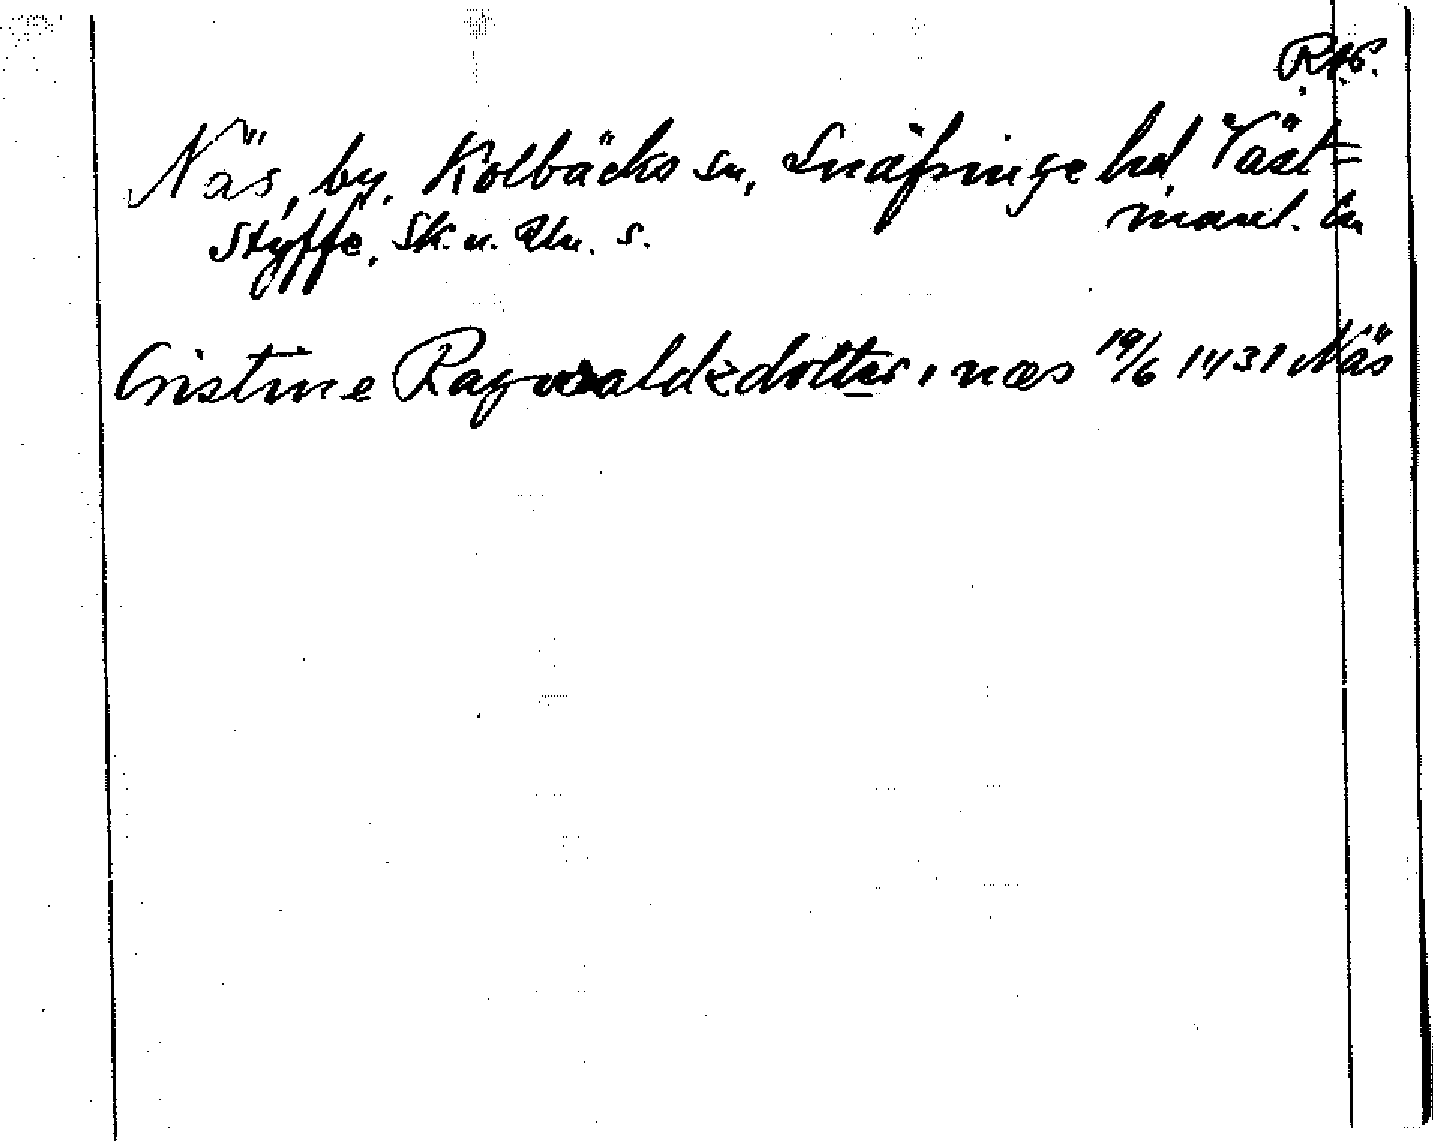 Näs, by, Kolbäcks sn, Snäfringe hd Väst=
manl. län
Styffe, Sk. u. Un. s.
Cristine Ragvaldzdotter, næs 19/6 1431 Näs